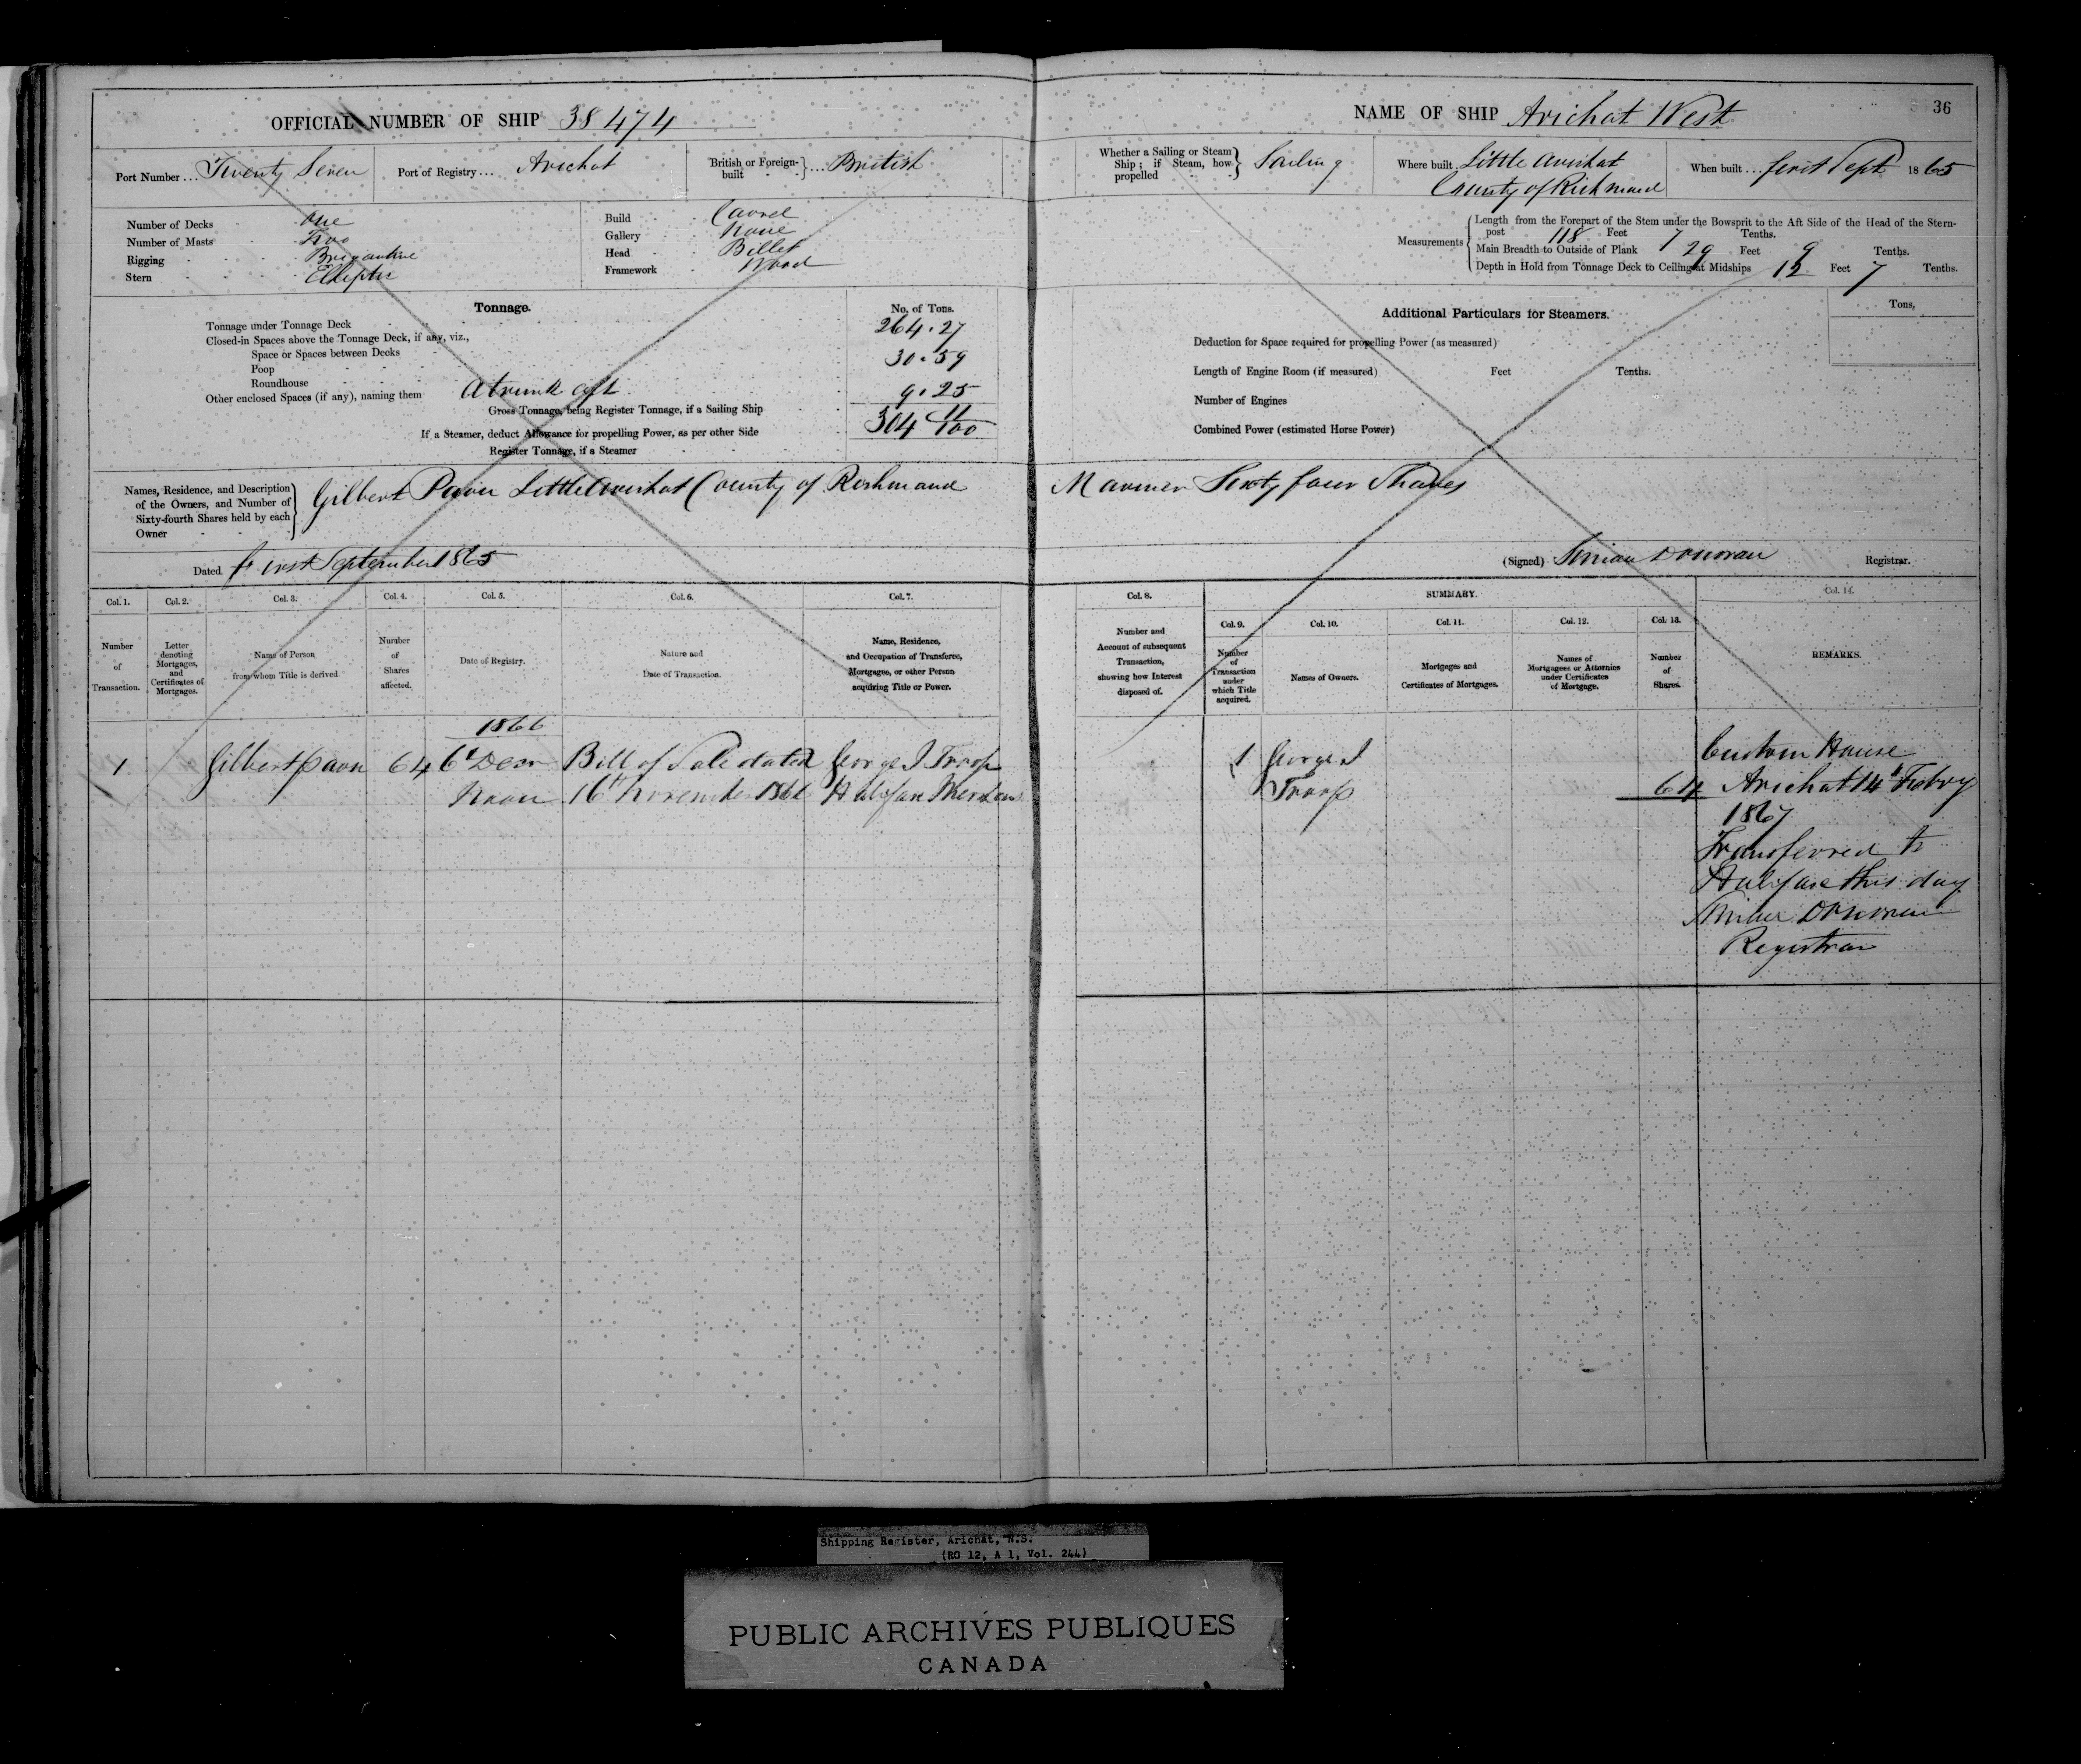 OFFICIAL NUMBER OF SHIP 38474
Port Number ... Twenty Seven
Port of Registry ... Arichat
British or Foreign-built } ... British
Number of Decks One
Number of Masts Two
Rigging Brigantine
Stern Elliptic
Build Carvel
Gallery None
Head Billet
Framework Wood
Tonnage.
No. of Tons.
Tonnage under Tonnage Deck 264.27
Closed-in Spaces above the Tonnage Deck, if any, viz.,
Space or Spaces between Decks 30.59
Poop
Roundhouse
Other enclosed Spaces (if any), naming them A trunk aft 9.25
Gross Tonnage, being Register Tonnage, if a Sailing Ship 304 11/100
If a Steamer, deduct Allowance for propelling Power, as per other Side
Register Tonnage, if a Steamer
Names, Residence, and Description
of the Owners, and Number of
Sixty-fourth Shares held by each
Owner
Gilbert Little Arichat County of Richmond
Dated First September 1865
Col. 1.
Number
of
Transaction.
Col. 2.
Letter
denoting
Mortgages,
and
Certificates of
Mortgages.
Col. 3.
Name of Person
from whom Title is derived
Col. 4.
Number
of
Shares
affected.
Col. 5.
Date of Registry.
Col. 6.
Nature and
Date of Transaction.
Col. 7.
Name, Residence,
and Occupation of Transferee,
Mortgagee, or other Person
acquiring Title or Power.
1866
1 Gilbert 64 6th Decr Bill of Sale dated George J Troop
Noon 16th November 1866 Halifax
NAME OF SHIP Arichat West
36
Whether a Sailing or Steam
Ship; if Steam, how
propelled
Sailing
Where built Little Arichat
County of Richmond
When built ... first Sept 1865
Measurements
Length from the Forepart of the Stem under the Bowsprit to the Aft Side of the Head of the Stern-
post 118 Feet 7 Tenths.
Main Breadth to Outside of Plank 29 Feet 9 Tenths.
Depth in Hold from Tonnage Deck to Ceiling at Midships 12 Feet 7 Tenths.
Additional Particulars for Steamers.
Tons.
Deduction for Space required for propelling Power (as measured)
Length of Engine Room (if measured) Feet Tenths.
Number of Engines
Combined Power (estimated Horse Power)
Mariner Sixty four Shares
(Signed) Donovan Registrar.
Col. 8.
Number and
Account of subsequent
Transaction,
showing how Interest
disposed of.
SUMMARY.
Col. 9.
Number
of
Transaction
under
which Title
acquired.
Col. 10.
Names of Owners.
Col. 11.
Mortgages and
Certificates of Mortgages.
Col. 12.
Names of
Mortgagees or Attornies
under Certificates
of Mortgage.
Col. 13.
Number
of
Shares.
Col. 14.
REMARKS.
1 George J
Troop
64
Custom House
Arichat 14th Febry
1867
Transferred to
Halifax this day
Donovan
Registrar
Shipping Register, Arichat, N.S.
(RG 12, A 1, Vol. 244)
PUBLIC ARCHIVES PUBLIQUES
CANADA